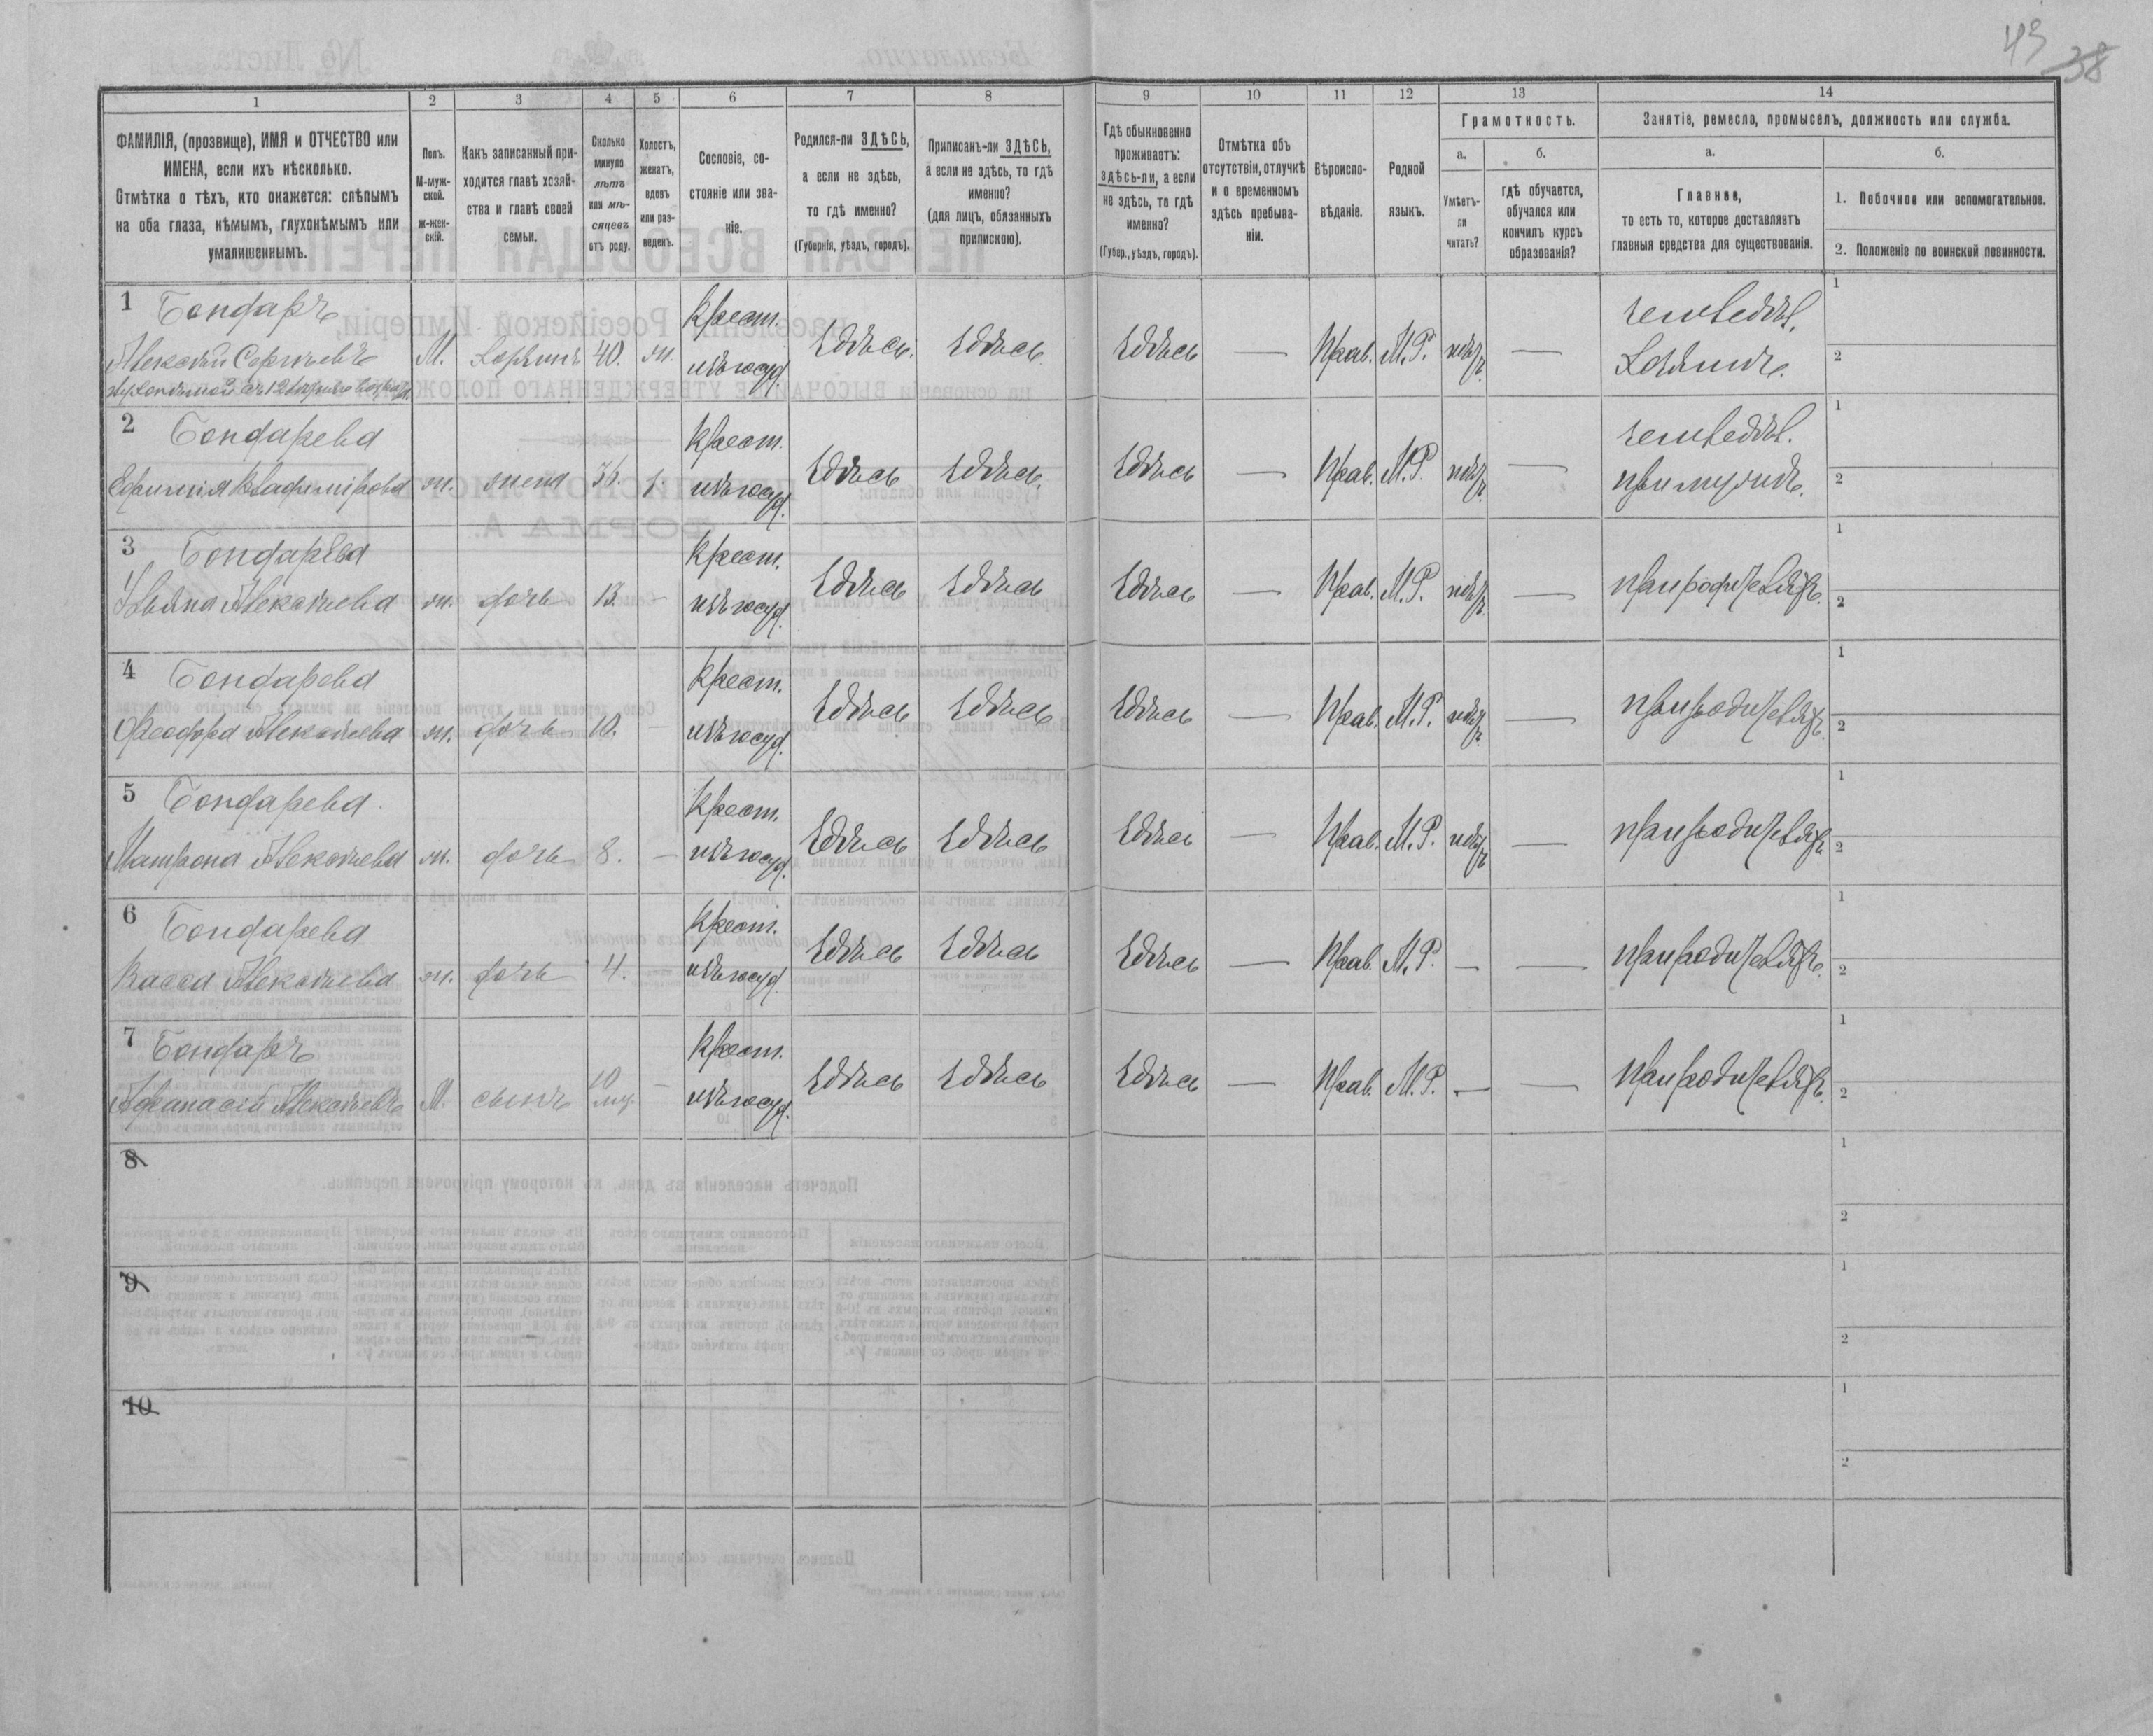 43 38
1 2 3 4 5 6 7 8 9 10 11 12 13 14
ФАМИЛІЯ, (прозвище), ИМЯ и ОТЧЕСТВО или
ИМЕНА, если ихъ нѣсколько.
Отмѣтка о тѣхъ, кто окажется: слѣпымъ
на оба глаза, нѣмымъ, глухонѣмымъ или
умалишеннымъ.
Полъ.
М-муж-
ской.
Ж-жен-
скій.
Какъ записанный при-
ходится главѣ хозяй-
ства и главѣ своей
семьи.
Сколько
минуло
лѣтъ
или мѣ-
сяцевъ
отъ роду.
Холостъ,
женатъ,
вдовъ
или раз-
веденъ.
Сословіе, со-
стояніе или зва-
ніе.
Родился-ли ЗДѢСЬ,
а если не здѣсь,
то гдѣ именно?
(Губернія, уѣздъ, городъ).
Приписанъ-ли ЗДѢСЬ,
а если не здѣсь, то гдѣ
именно?
(для лицъ, обязанныхъ
припискою).
Гдѣ обыкновенно
проживаетъ:
здѣсь-ли, а если
не здѣсь, то гдѣ
именно?
(Губер., уѣздъ, городъ).
Отмѣтка объ
отсутствіи, отлучкѣ
и о временномъ
здѣсь пребыва-
ніи.
Вѣроиспо-
вѣданіе.
Родной
языкъ.
Грамотность.
а.
Умѣетъ-
ли
читать?
б.
гдѣ обучается,
обучался или
кончилъ курсъ
образованія?
Занятіе, ремесло, промыселъ, должность или служба.
а.
Главное,
то есть то, которое доставляетъ
главныя средства для существованія.
б.
1. Побочное или вспомогательное.
2. Положеніе по воинской повинности.
1 Бондарь
Алексѣй Сергѣевъ М. хозяинъ 40. ж. Крест. изъ госуд. Здѣсь. Здѣсь Здѣсь — Прав. М.Р. нѣтъ — земледѣл. хозяинъ. 1 2
2 Бондарева
Ефимія Владимірова ж. жена 36. з. Крест. изъ госуд. Здѣсь Здѣсь. Здѣсь — Прав. М.Р. нѣтъ — земледѣл. при мужѣ. 1 2
3 Бондарева
Ульяна Алексѣева ж. дочь 13. — Крест. изъ госуд. Здѣсь Здѣсь Здѣсь — Прав. М.Р. нѣтъ — при родителяхъ. 1 2
4 Бондарева
Феодора Алексѣева ж. дочь 10. — Крест. изъ госуд. Здѣсь Здѣсь Здѣсь — Прав. М.Р. нѣтъ — при родителяхъ. 1 2
5 Бондарева.
Матрона Алексѣева ж. дочь 8. — Крест. изъ госуд. Здѣсь Здѣсь Здѣсь — Прав. М.Р. нѣтъ — при родителяхъ 1 2
6 Бондарева
Васса Алексѣева ж. дочь 4. Крест. изъ госуд. Здѣсь Здѣсь Здѣсь — Прав. М.Р. — — при родителяхъ. 1 2
7 Бондарь
Афанасій Алексѣевъ М. сынъ 10 мц. — Крест. изъ госуд. Здѣсь Здѣсь Здѣсь — Прав. М.Р. — — при родителяхъ. 1 2
8 1 2
9 1 2
10 1 2